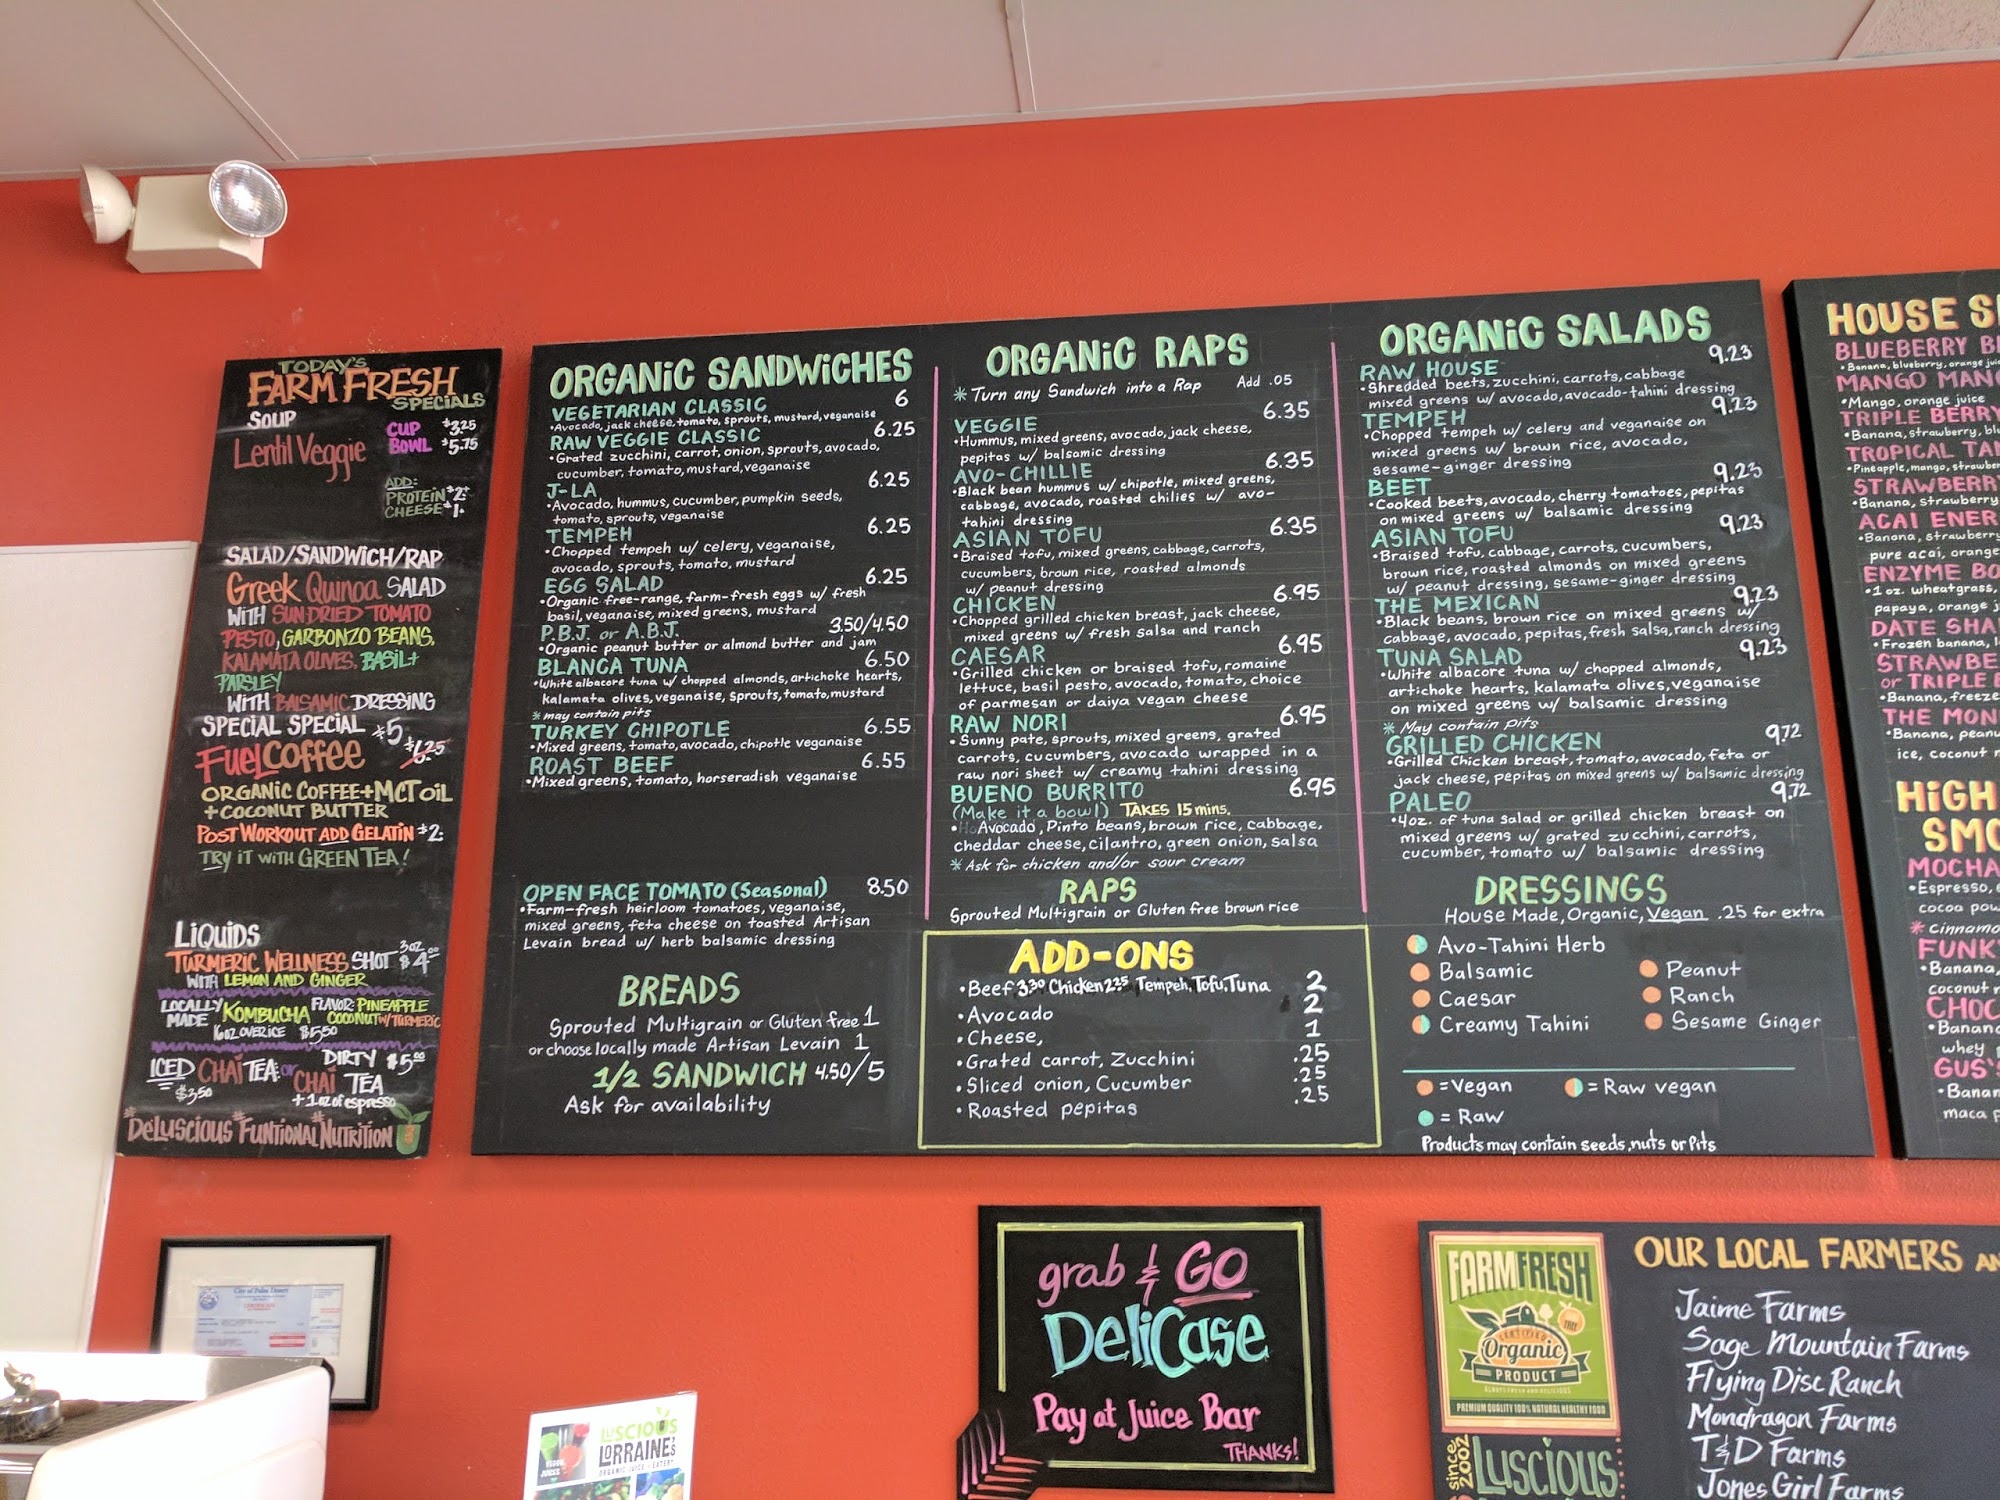 TODAY'S
FARM FRESH
SPECIALS
SOUP
Lentil Veggie
CUP $3.25
BOWL $5.75
ADD:
PROTEIN $2.
CHEESE $1.
SALAD/SANDWICH/RAP
Greek Quinoa SALAD
WITH SUNDRIED TOMATO
PESTO, GARBONZO BEANS,
KALAMATA OLIVES, BASIL +
PARSLEY
WITH BALSAMIC DRESSING
SPECIAL SPECIAL $5
FUEL COFFEE $6.25
ORGANIC COFFEE + MCT OIL
+ COCONUT BUTTER
POST WORKOUT ADD GELATIN $2.
TRY iT WiTH GREEN TEA!
LiQUiDS
TURMERIC WELLNESS SHOT 3oz $4.00
WITH LEMON AND GINGER
LOCALLY MADE KOMBUCHA FLAVOR: PINEAPPLE COCONUT W/ TURMERIC
16oz OVER ICE $5.50
ICED CHAI TEA or DIRTY CHAI TEA $5.00
$3.50 + 1 oz of espresso
DELUSCIOUS FUNTIONAL NUTRITION
ORGANiC SANDWiCHES
VEGETARIAN CLASSIC 6
•Avocado, jack cheese, tomato, sprouts, mustard, veganaise
RAW VEGGIE CLASSIC 6.25
•Grated zucchini, carrot, onion, sprouts, avocado,
cucumber, tomato, mustard, veganaise
J-LA 6.25
•Avocado, hummus, cucumber, pumpkin seeds,
tomato, sprouts, veganaise
TEMPEH 6.25
•Chopped tempeh w/ celery, veganaise,
avocado, sprouts, tomato, mustard
EGG SALAD 6.25
•Organic free-range, farm-fresh eggs w/ fresh
basil, veganaise, mixed greens, mustard
P.B.J. or A.B.J. 3.50/4.50
•Organic peanut butter or almond butter and jam
BLANCA TUNA 6.50
•White albacore tuna w/ chopped almonds, artichoke hearts,
kalamata olives, veganaise, sprouts, tomato, mustard
* may contain pits
TURKEY CHIPOTLE 6.55
•Mixed greens, tomato, avocado, chipotle veganaise
ROAST BEEF 6.55
•Mixed greens, tomato, horseradish veganaise
OPEN FACE TOMATO (Seasonal) 8.50
•Farm-fresh heirloom tomatoes, veganaise,
mixed greens, feta cheese on toasted Artisan
Levain bread w/ herb balsamic dressing
BREADS
Sprouted Multigrain or Gluten free 1
or choose locally made Artisan Levain 1
1/2 SANDWICH 4.50/5
Ask for availability
ORGANiC RAPS
* Turn any Sandwich into a Rap Add .05
VEGGIE 6.35
•Hummus, mixed greens, avocado, jack cheese,
pepitas w/ balsamic dressing
AVO-CHILLIE 6.35
•Black bean hummus w/ chipotle, mixed greens,
cabbage, avocado, roasted chilies w/ avo-
tahini dressing
ASIAN TOFU 6.35
•Braised tofu, mixed greens, cabbage, carrots,
cucumbers, brown rice, roasted almonds
w/ peanut dressing
CHICKEN 6.95
•Chopped grilled chicken breast, jack cheese,
mixed greens w/ fresh salsa and ranch
CAESAR 6.95
•Grilled chicken or braised tofu, romaine
lettuce, basil pesto, avocado, tomato, choice
of parmesan or daiya vegan cheese
RAW NORI 6.95
•Sunny pate, sprouts, mixed greens, grated
carrots, cucumbers, avocado wrapped in a
raw nori sheet w/ creamy tahini dressing
BUENO BURRITO 6.95
(Make it a bowl) TAKES 15 mins.
•Avocado, Pinto beans, brown rice, cabbage,
cheddar cheese, cilantro, green onion, salsa
* Ask for chicken and/or sour cream
RAPS
Sprouted Multigrain or Gluten free brown rice
ADD-ONS
•Beef 3.30 Chicken 2.25 Tempeh, Tofu, Tuna 2
•Avocado 2
•Cheese, 1
•Grated carrot, Zucchini .25
•Sliced onion, Cucumber .25
•Roasted pepitas .25
ORGANiC SALADS
RAW HOUSE 9.23
•Shredded beets, zucchini, carrots, cabbage
mixed greens w/ avocado, avocado-tahini dressing
TEMPEH 9.23
•Chopped tempeh w/ celery and veganaise on
mixed greens w/ brown rice, avocado,
sesame-ginger dressing
BEET 9.23
•Cooked beets, avocado, cherry tomatoes, pepitas
on mixed greens w/ balsamic dressing
ASIAN TOFU 9.23
•Braised tofu, cabbage, carrots, cucumbers,
brown rice, roasted almonds on mixed greens
w/ peanut dressing, sesame-ginger dressing
THE MEXICAN 9.23
•Black beans, brown rice on mixed greens w/
cabbage, avocado, pepitas, fresh salsa, ranch dressing
TUNA SALAD 9.23
•White albacore tuna w/ chopped almonds,
artichoke hearts, kalamata olives, veganaise
on mixed greens w/ balsamic dressing
* May contain pits
GRILLED CHICKEN 9.72
•Grilled Chicken breast, tomato, avocado, feta or
jack cheese, pepitas on mixed greens w/ balsamic dressing
PALEO 9.72
•4oz. of tuna salad or grilled chicken breast on
mixed greens w/ grated zucchini, carrots,
cucumber, tomato w/ balsamic dressing
DRESSINGS
House Made, Organic, Vegan .25 for extra
Avo-Tahini Herb
Balsamic
Caesar
Creamy Tahini
Peanut
Ranch
Sesame Ginger
= Vegan = Raw vegan
= Raw
Products may contain seeds, nuts or Pits
HOUSE S
BLUEBERRY B
•Banana, blueberry, orange jui
MANGO MAN
•Mango, orange juice
TRIPLE BERRY
•Banana, strawberry, blu
TROPICAL TA
•Pineapple, mango, strawber
STRAWBERRY
•Banana, strawberry
ACAI ENER
•Banana, strawberry
pure acai, orange
ENZYME BO
•1 oz. wheatgrass,
papaya, orange j
DATE SHA
•Frozen banana,
STRAWBE
or TRIPLE
•Banana, freeze
THE MON
•Banana, peanu
ice, coconut
HiGH
SMO
MOCHA
•Espresso,
cocoa pow
* cinnamo
FUNK
•Banana,
coconut
CHOC
•Banan
whey
GUS'S
•Banan
maca p
grab & GO
DeliCase
Pay at Juice Bar
THANKS!
City of Palm Desert
LUSCIOUS
LORRAINE'S
ORGANIC JUICE + EATERY
JUICES
FARMFRESH
CERTIFIED
Organic
PRODUCT
PREMIUM QUALITY 100% NATURAL HEALTHY FOOD
since 2002
LUSCIOUS
OUR LOCAL FARMERS AN
Jaime Farms
Sage Mountain Farms
Flying Disc Ranch
Mondragon Farms
T&D Farms
Jones Girl Farms